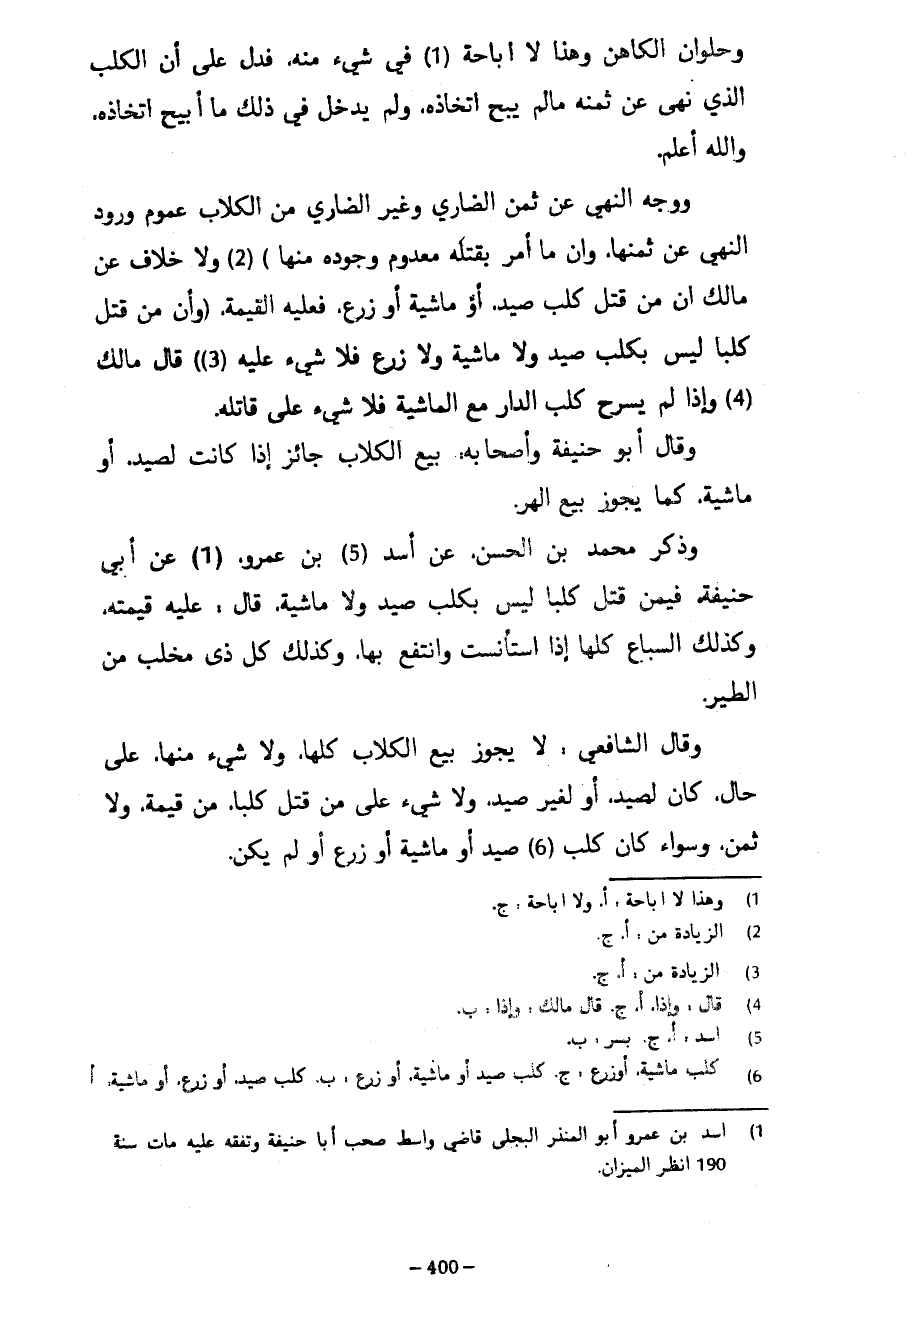 وحلوان الكاهن وهذا لا اباحة (1) في شيء منه، فدل على أن الكلب
الذي نهى عن ثمنه مالم يبح اتخاذه، ولم يدخل في ذلك ما أبيح اتخاذه،
والله أعلم.
ووجه النهي عن ثمن الضاري وغير الضاري من الكلاب عموم ورود
النهي عن ثمنها، وان ما أمر بقتله معدوم وجوده منها ) (2) ولا خلاف عن
مالك ان من قتل كلب صيد، أؤ ماشية أو زرع، فعليه القيمة، (وأن من قتل
كلبا ليس بكلب صيد ولا ماشية ولا زرع فلا شيء عليه (3)) قال مالك
(4) وإذا لم يسرح كلب الدار مع الماشية فلا شيء على قاتله.
وقال أبو حنيفة وأصحابه: بيع الكلاب جائز إذا كانت لصيد، أو
ماشية، كما يجوز بيع الهر.
وذكر محمد بن الحسن، عن أسد (5) بن عمرو، (1) عن أبي
حنيفة، فيمن قتل كلبا ليس بكلب صيد ولا ماشية، قال : عليه قيمته،
وكذلك السباع كلها إذا استأنست وانتفع بها، وكذلك كل ذى مخلب من
الطير.
وقال الشافعي : لا يجوز بيع الكلاب كلها، ولا شيء منها، على
حال، كان لصيد، أو لغير صيد، ولا شيء على من قتل كلبا، من قيمة، ولا
ثمن، وسواء كان كلب (6) صيد أو ماشية أو زرع أو لم يكن.
1) وهذا لا اباحة : أ، ولا اباحة : ج.
2) الزيادة من : أ، ج.
3) الزيادة من : أ، ج.
4) قال : وإذا، أ، ج. قال مالك : وإذا : ب.
5) اسد : أ، ج. بسر : ب.
6) كلب ماشية، أوزرع : ج. كلب صيد أو ماشية، أو زرع : ب. كلب صيد، أو زرع، أو ماشية، أ
1) اسد بن عمرو أبو المنذر البجلى قاضي واسط صحب أبا حنيفة وتفقه عليه مات سنة
190 انظر الميزان.
– 400 –